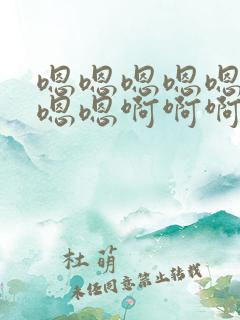 嗯嗯嗯嗯嗯
嗯嗯啊啊啊
杜萌
未经同意禁止转载